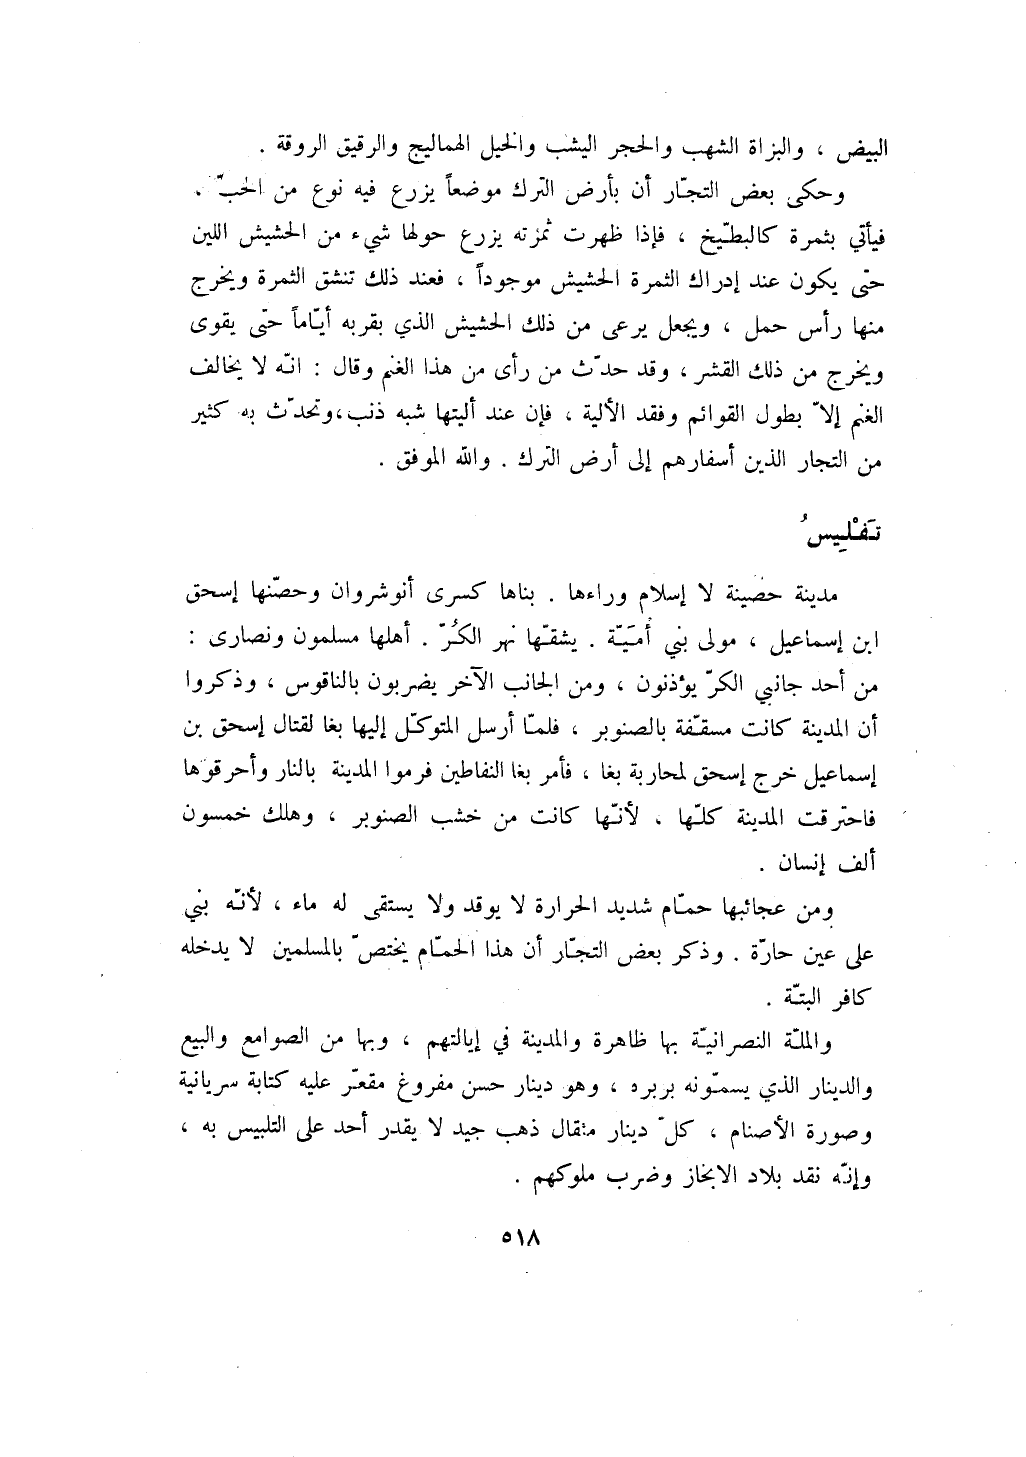 البيض ، والبزاة الشهب والحجر اليشب والخيل الهماليج والرقيق الروقة .
وحكى بعض التجّار أن بأرض الترك موضعاً يزرع فيه نوع من الحبّ ،
فيأتي بثمرة كالبطّيخ ، فإذا ظهرت ثمرته يزرع حولها شيء من الحشيش اللين
حتّى يكون عند إدراك الثمرة الحشيش موجوداً ، فعند ذلك تنشق الثمرة ويخرج
منها رأس حمل ، ويجعل يرعى من ذلك الحشيش الذي بقربه أيّاماً حتّى يقوى
ويخرج من ذلك القشر ، وقد حدّث من رأى من هذا الغنم وقال : انّه لا يخالف
الغنم إلاّ بطول القوائم وفقد الألية ، فإن عند أليتها شبه ذنب،وتحدّث به كثير
من التجار الذين أسفارهم إلى أرض الترك . والله الموفق .
تَفْلِيسُ
مدينة حصينة لا إسلام وراءها . بناها كسرى أنوشروان وحصّنها إسحق
ابن إسماعيل ، مولى بني أُميّة . يشقّها نهر الكُرّ . أهلها مسلمون ونصارى :
من أحد جانبي الكرّ يؤذنون ، ومن الجانب الآخر يضربون بالناقوس ، وذكروا
أن المدينة كانت مسقّفة بالصنوبر ، فلمّا أرسل المتوكّل إليها بغا لقتال إسحق بن
إسماعيل خرج إسحق لمحاربة بغا ، فأمر بغا النفاطين فرموا المدينة بالنار وأحرقوها
فاحترقت المدينة كلّها ، لأنّها كانت من خشب الصنوبر ، وهلك خمسون
ألف إنسان .
ومن عجائبها حمّام شديد الحرارة لا يوقد ولا يستقى له ماء ، لأنّه بني
على عين حارّة . وذكر بعض التجّار أن هذا الحمّام يختصّ بالمسلمين لا يدخله
كافر البتّة .
والملّة النصرانيّة بها ظاهرة والمدينة في إيالتهم ، وبها من الصوامع والبيع
والدينار الذي يسمّونه بربره ، وهو دينار حسن مفروغ مقعّر عليه كتابة سريانية
وصورة الأصنام ، كلّ دينار مثقال ذهب جيد لا يقدر أحد على التلبيس به ،
وإنّه نقد بلاد الابخاز وضرب ملوكهم .
٥١٨